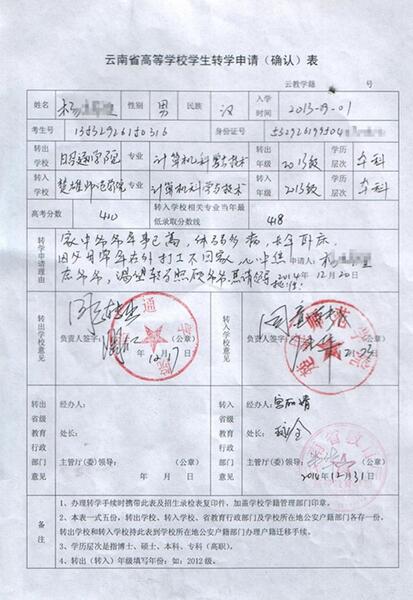 云南省高等学校学生转学申请（确认）表
云教学籍 号
姓名 杨 性别 男 民族 汉 入学时间 2013-09-01
考生号 13532926150316 身份证号 532926199504
转出学校 昭通学院 专业 计算机科学与技术 转出年级 2013级 学历层次 本科
转入学校 楚雄师范学院 专业 计算机科学与技术 转入年级 2013级 学历层次 本科
高考分数 410 转入学校相关专业当年最低录取分数线 418
转学申请理由
家中爷爷年事已高，体弱多病，长年卧床
因父母常年在外打工不回家，心中
申请人：
爷爷，
2014年12月20日
转出学校意见
同意转出
负责人签字： （公章）
12.17
转入学校意见
同意
负责人签字： （公章）
转出省级教育行政部门意见
经办人：
处长：
主管厅(委)领导： （公章）
年 月 日
转入省级教育行政部门意见
经办人：
处长：
主管厅(委)领导： （公章）
2014年12月31日
备注
1、办理转学手续时携带此表及招生录检表复印件，加盖学校学籍管理部门印章。
2、本表一式五份，转出学校、转入学校、省教育行政部门及学校所在地公安户籍部门各存一份，
转出学校和转入学校持此表到学校所在地公安户籍部门办理户籍迁移手续。
3、学历层次是指博士、硕士、本科、专科（高职）。
4、转出（转入）年级填写年份：如：2012级。